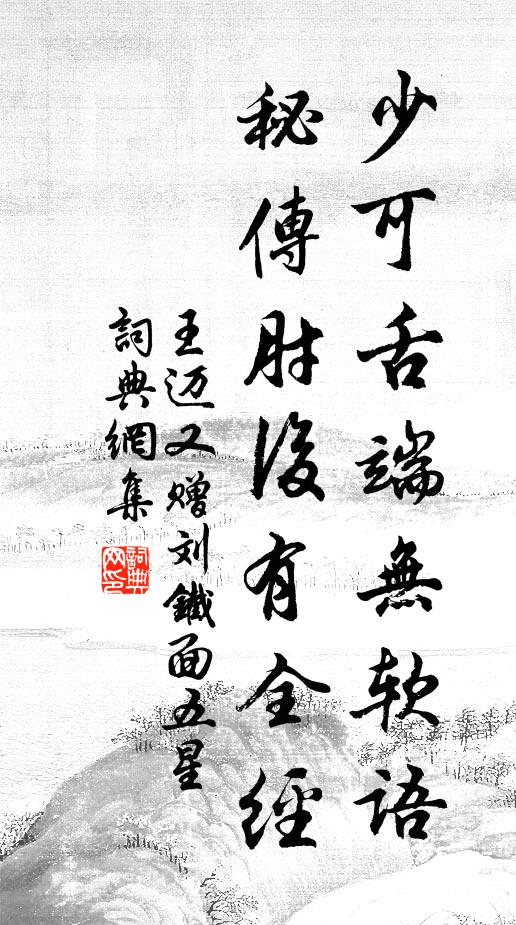 少可舌端無软語
秘傳肘後有全經
王迈又赠刘鐵面五星
詞典網集
詞典网印